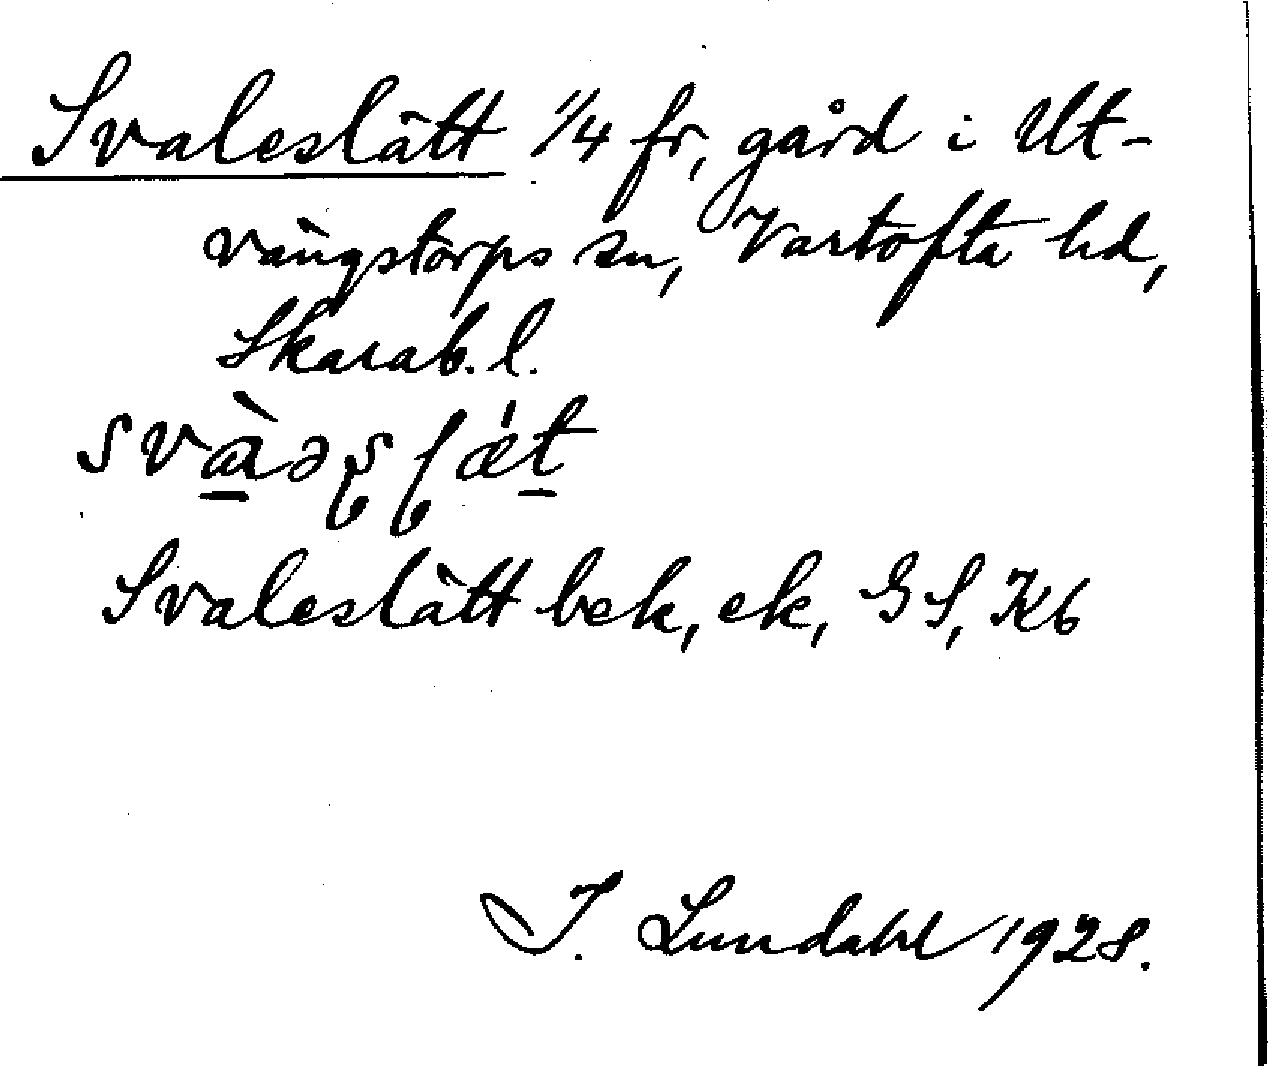 Svaleslätt 1/4 fr, gård i Ut-
vängstorps sn, Vartofta hd,
Skarab. l.
Svaleslätt bek, ek, GS, Kb
I. Lundahl 1928.